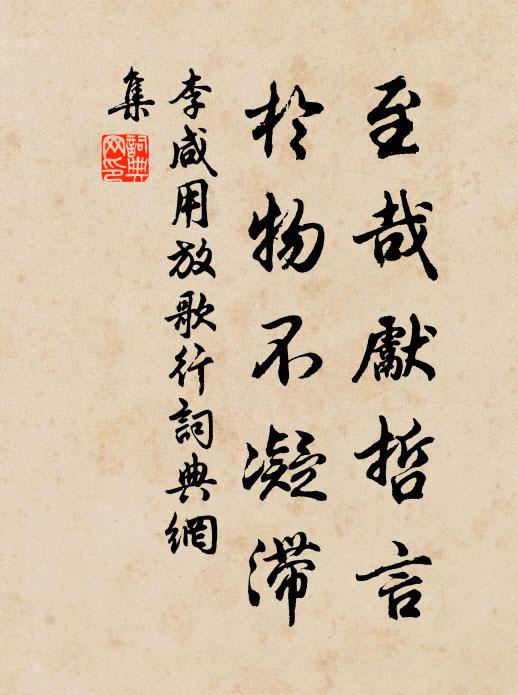 至哉獻哲言
於物不凝滯
李咸用放歌行詞典網
集
詞典網印